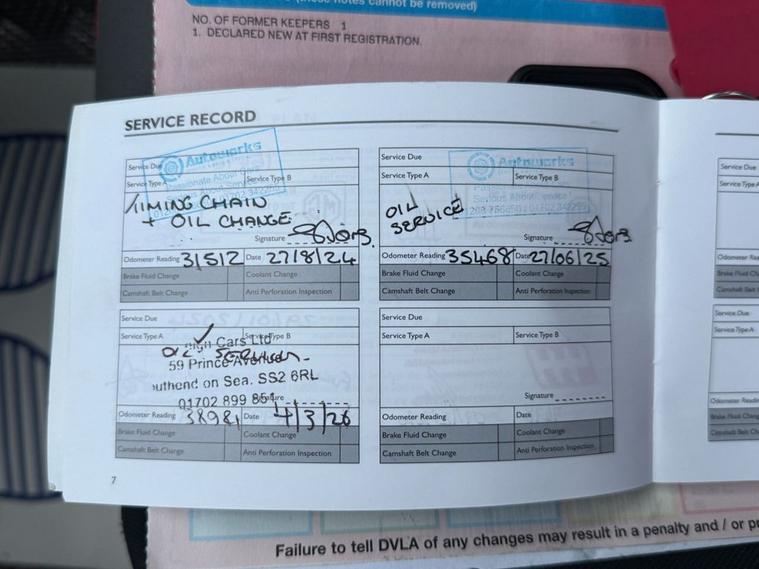 (these notes cannot be removed)
NO. OF FORMER KEEPERS 1
1. DECLARED NEW AT FIRST REGISTRATION.
SERVICE RECORD
Service Due
Autoworks
Service Type A
Service Type B
TIMING CHAIN
+ OIL CHANGE
Signature
Odometer Reading 31512 Date 27/8/24
Brake Fluid Change
Coolant Change
Camshaft Belt Change
Anti Perforation Inspection
Service Due
Autoworks
Service Type A
Service Type B
OIL
SERVICE
Signature
Odometer Reading 35468 Date 27/06/25
Brake Fluid Change
Coolant Change
Camshaft Belt Change
Anti Perforation Inspection
Service Due
Service Type A
Service Type B
Cars Ltd
OIL SERVICE
59 Prince
on Sea. SS2 6RL
01702 899
Signature
Odometer Reading 38981 Date 4/3/26
Brake Fluid Change
Coolant Change
Camshaft Belt Change
Anti Perforation Inspection
Service Due
Service Type A
Service Type B
Signature
Odometer Reading
Date
Brake Fluid Change
Coolant Change
Camshaft Belt Change
Anti Perforation Inspection
7
Service Due
Service Type A
Odometer Reading
Brake Fluid Change
Camshaft Belt
Service Due
Service Type A
Odometer Reading
Brake Fluid Change
Camshaft Belt
Failure to tell DVLA of any changes may result in a penalty and / or